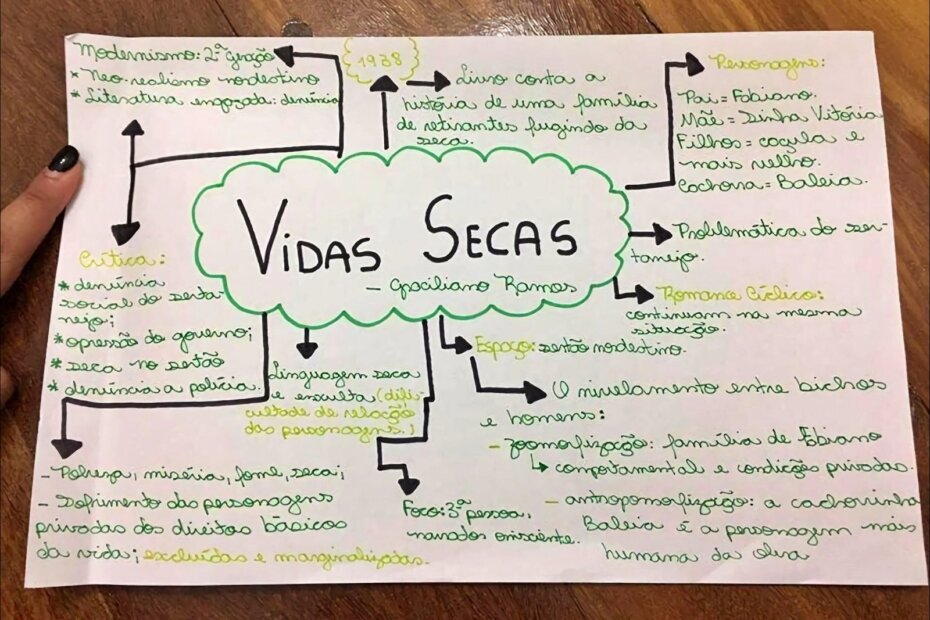 Modernismo: 2ª geração
* Neo-realismo nordestino
* Literatura engajada: denúncia
1938
Livro conta a
história de uma família
de retirantes fugindo da
seca.
Personagens:
Pai = Fabiano.
Mãe = Sinha Vitória
Filhos = caçula e
mais velho.
Cachorra = Baleia.
VIDAS SECAS
- Graciliano Ramos
Problemática do ser-
tanejo.
Romance Cíclico:
continuam na mesma
situação.
Crítica:
* denúncia
social do serta
nejo;
* opressão do governo;
* seca no sertão
* denúncia a polícia.
Linguagem seca
e enxuta (difi-
culdade de relação
das personagens.)
Espaço: sertão nordestino.
O nivelamento entre bichos
e homens:
- zoomorfização: famílias de Fabiano
comportamental e condições privadas.
- antropomorfização: a cachorrinha
Baleia é a personagem mais
humana da obra
Foco: 3ª pessoa,
narrador onisciente.
- Pobreza, miséria, fome, seca;
- Sofrimento das personagens
privadas dos direitos básicos
da vida; excluídas e marginalizadas.